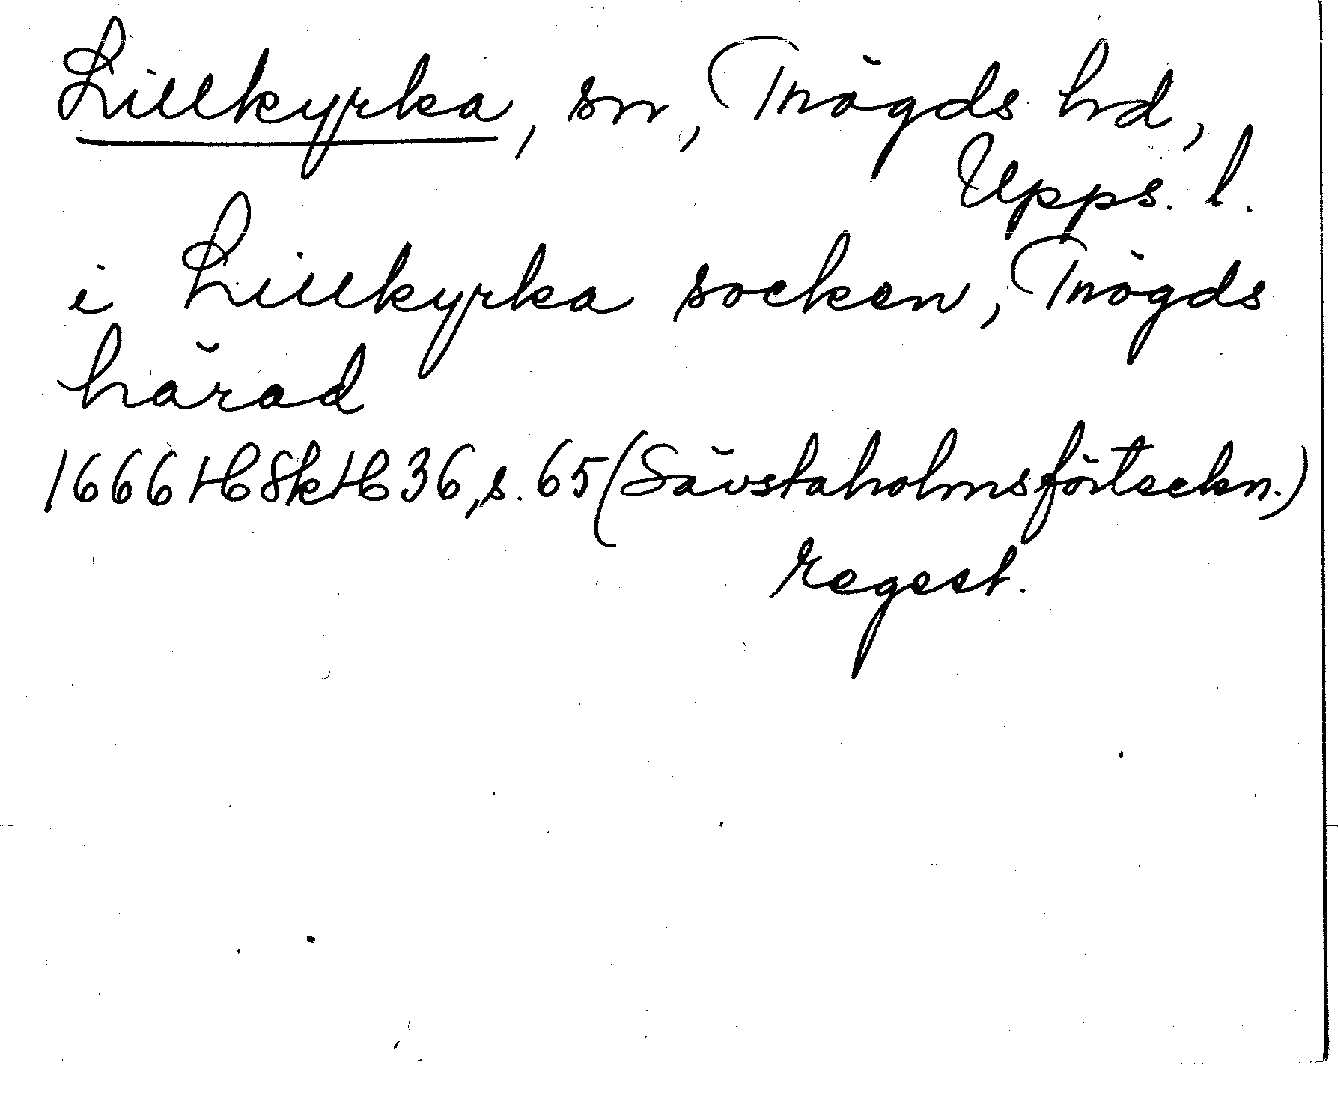 Lillkyrka, sn, Trögds hd,
Upps. l.
i Lillkyrka socken, Trögds
härad
1666 H8k H36, s. 65 (Sävstaholmsförteckn.)
regest.